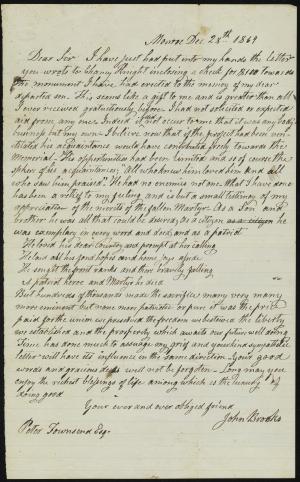 Monroe Dec 28th 1869
Dear Sir I have just had put into my hands the letter
you wrote to Shang Knight inclosing a check for $100 towards
the monument I have had erected to the memory of my dear
departed son. This seems like a gift to me and is greater than all
I ever received gratuitously before. I had not solicited or expected
aid from any one. Indeed it had not occur to me that it was any body
business but my own. I believe now that if the project had been ven-
tilated his acquaintance would have contributed freely towards the
Memorial. His opportunities had been limited and so of course the
sphere of his acquaintances. All who knew him loved him and all
who saw him praised. He had no enemies not one. What I have done
has been a relief to my feelings and is but a small testimony of my
appreciation of the merits of the fallen Martyr. As a Son and
brother he was all that could be desired, as a citizen as a citizen he
was exemplary in every word and deed, and as a patriot
He loved his dear Country and prompt at her calling
He laid all his fond hopes and home joys aside
He sought the front ranks and there bravely falling
A patriot heroe and Martyr he died
But hundreds of thousands made the sacrifice many very many
more eminent but none more patriotic or pure. it was the price
paid for the union we possess and the freedom we boast and the liberty
we established and the prosperity which awaits our future well doing
Time has done much to assuage my grief and your kind sympathetic
letter will have its influence in the same direction. Your good
words and gracious deeds will not be forgoten. Long may you
enjoy the richest blessings of life among which is the luxury of
doing good
Your ever and ever obliged friend
John Brooks
Peter Townsend Esqr